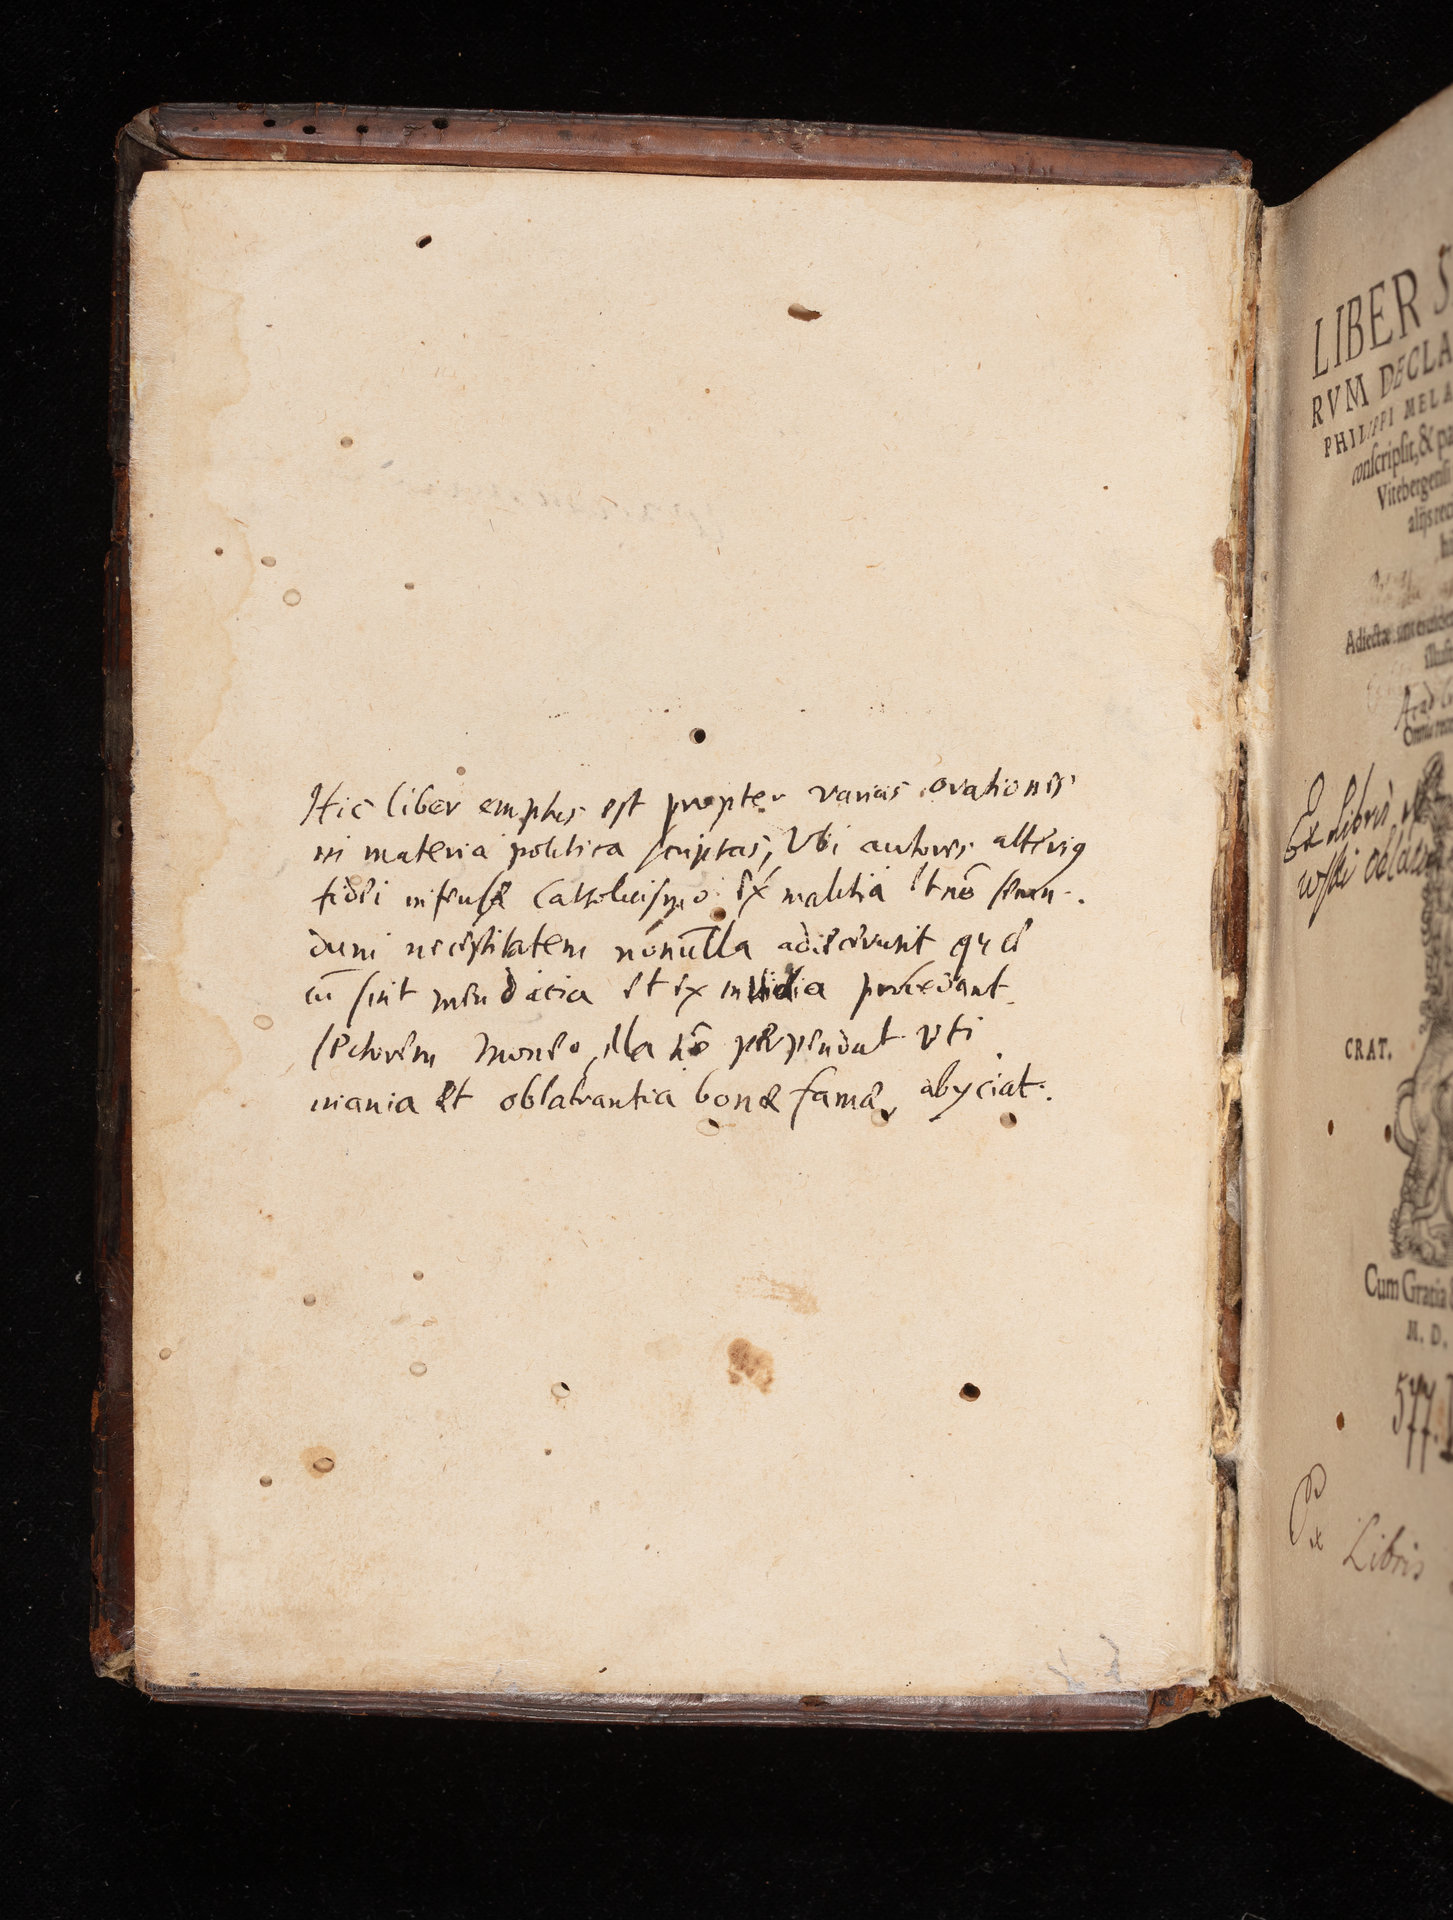 Hic liber emptus est propter varias orationes
in materia politica scriptas, Vbi autores alteriꝰ
fidei infensæ Catholicismo ex malitia et nō secun-
dum necessitatem nonūlla adiecerunt quæ
cū sint mendacia et ex invidia procedant
lectorem moneo, illa nō perpendat vti
inania et oblatrantia bonæ famæ, abyciat.
LIBER S
RVM DECLA
PHILIPPI MELA
conscripsit, & pa
Vitebergensi
alijs rec
Adiectæ
illust
Acad
Omnia
Ex Libris
wski
CRAT.
Cum Gratia
M. D.
577.
ex
Libris